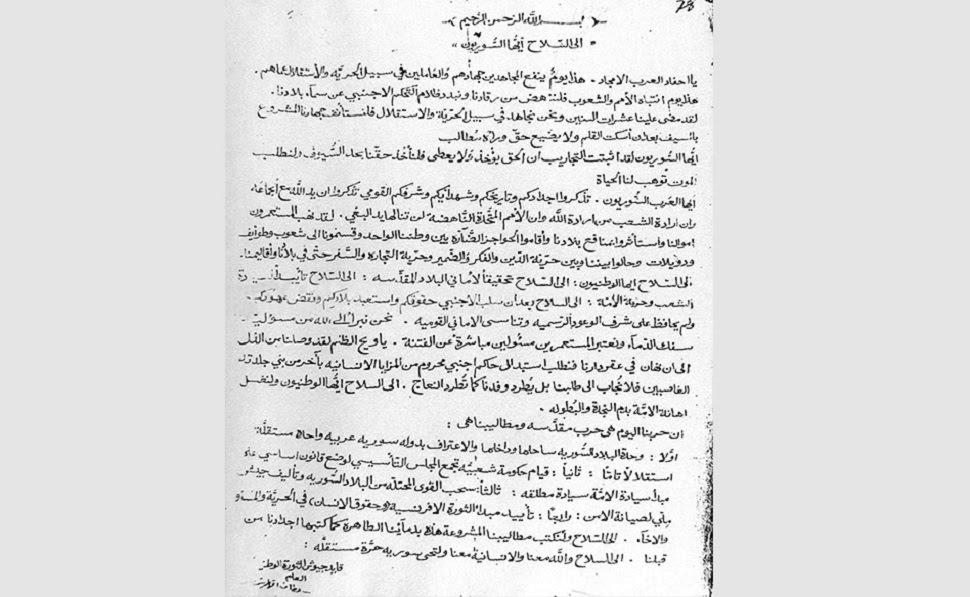 73
بسم الله الرحمن الرحيم
" الى السلاح ايها السوريون "
يا احفاد العرب الامجاد . هذا يوم ينفع المجاهدين جهادهم والعاملين في سبيل الحرية والأستقلال عملهم .
هذا يوم انتباه الأمم والشعوب فلننهض من رقادنا ونبدد ظلام التحكم الاجنبي عن سماء بلادنا .
لقد مضى علينا عشرات السنين ونحن نجاهد في سبيل الحرية والاستقلال فلنستأنف جهادنا المشروع
بالسيف بعد ان أسكت القلم ولا يضيع حق وراءه مطالب
ايها السوريون لقد أثبتت التجاريب ان الحق يؤخذ ولا يعطى فلنأخذ حقنا بحد السيوف ولنطلب
الموت توهب لنا الحياة
ايها العرب السوريون . تذكروا اجدادكم وتاريخكم وشهدائكم وشرفكم القومي تذكروا ان يد الله مع الجماعة
وان ارادة الشعب من ارادة الله وان الأمم المتحدة الناهضة لن تنالها يد البغي . لقد نهب المستعمرون
اموالنا واستأثروا بمنافع بلادنا وأقاموا الحواجز الضارة بين وطننا الواحد وقسمونا الى شعوب وطوائف
ودويلات وحالوا بيننا وبين حرية الدين والفكر والضمير وحرية التجارة والسفر حتى في بلادنا وأقاليمنا .
الى السلاح ايها الوطنيون : الى السلاح تحقيقاً لأماني البلاد المقدسه : الى السلاح تأييداً لسيادة
الشعب وحرية الأمة : الى السلاح بعد ان سلب الاجنبي حقوقكم واستعبد بلادكم ونقض عهودكم .
ولم يحافظ على شرف الوعود الرسميه وتناسى الاماني القوميه . نحن نبرأ الى الله من مسؤلية
سفك الدماء ونعتبر المستعمرين مسئولين مباشرة عن الفتنة . يا ويح الظلم لقد وصلنا من الذل
الى ان نهان في عقر دارنا فنطلب استبدال حاكم اجنبي محروم من المزايا الانسانيه بآخر من بني جلدته
الغاصبين فلا نجاب الى طلبنا بل يطرد وفدنا كما تطرد النعاج . الى السلاح ايها الوطنيون ولنغسل
اهانة الامة بدم النجدة والبطوله .
ان حربنا اليوم هي حرب مقدسه ومطاليبنا هي :
اولا : وحدة البلاد السوريه ساحلها وداخلها والاعتراف بدوله سوريه عربيه واحدة مستقلة
استقلالاً تاماً : ثانياً : قيام حكومة شعبيه تجمع المجلس التأسيسي لوضع قانون اساسي على
مبدأ سيادة الامة سيادة مطلقه : ثالثاً : سحب القوى المحتله من البلاد السوريه وتأليف جيش
ملي لصيانة الامن : رابعاً : تأييد مبدأ الثورة الافرنسيه (وحقوق الانسان) في الحرية والمساواة
والاخاء . الى السلاح ولنكتب مطاليبنا المشروعة هذه بدمائنا الطاهرة كما كتبها اجدادنا من
قبلنا . الى السلاح والله معنا والانسانية معنا ولتحي سوريه حرة مستقله :
قايد جيوش الثورة الوطنية
العام
سلطان الاطرش